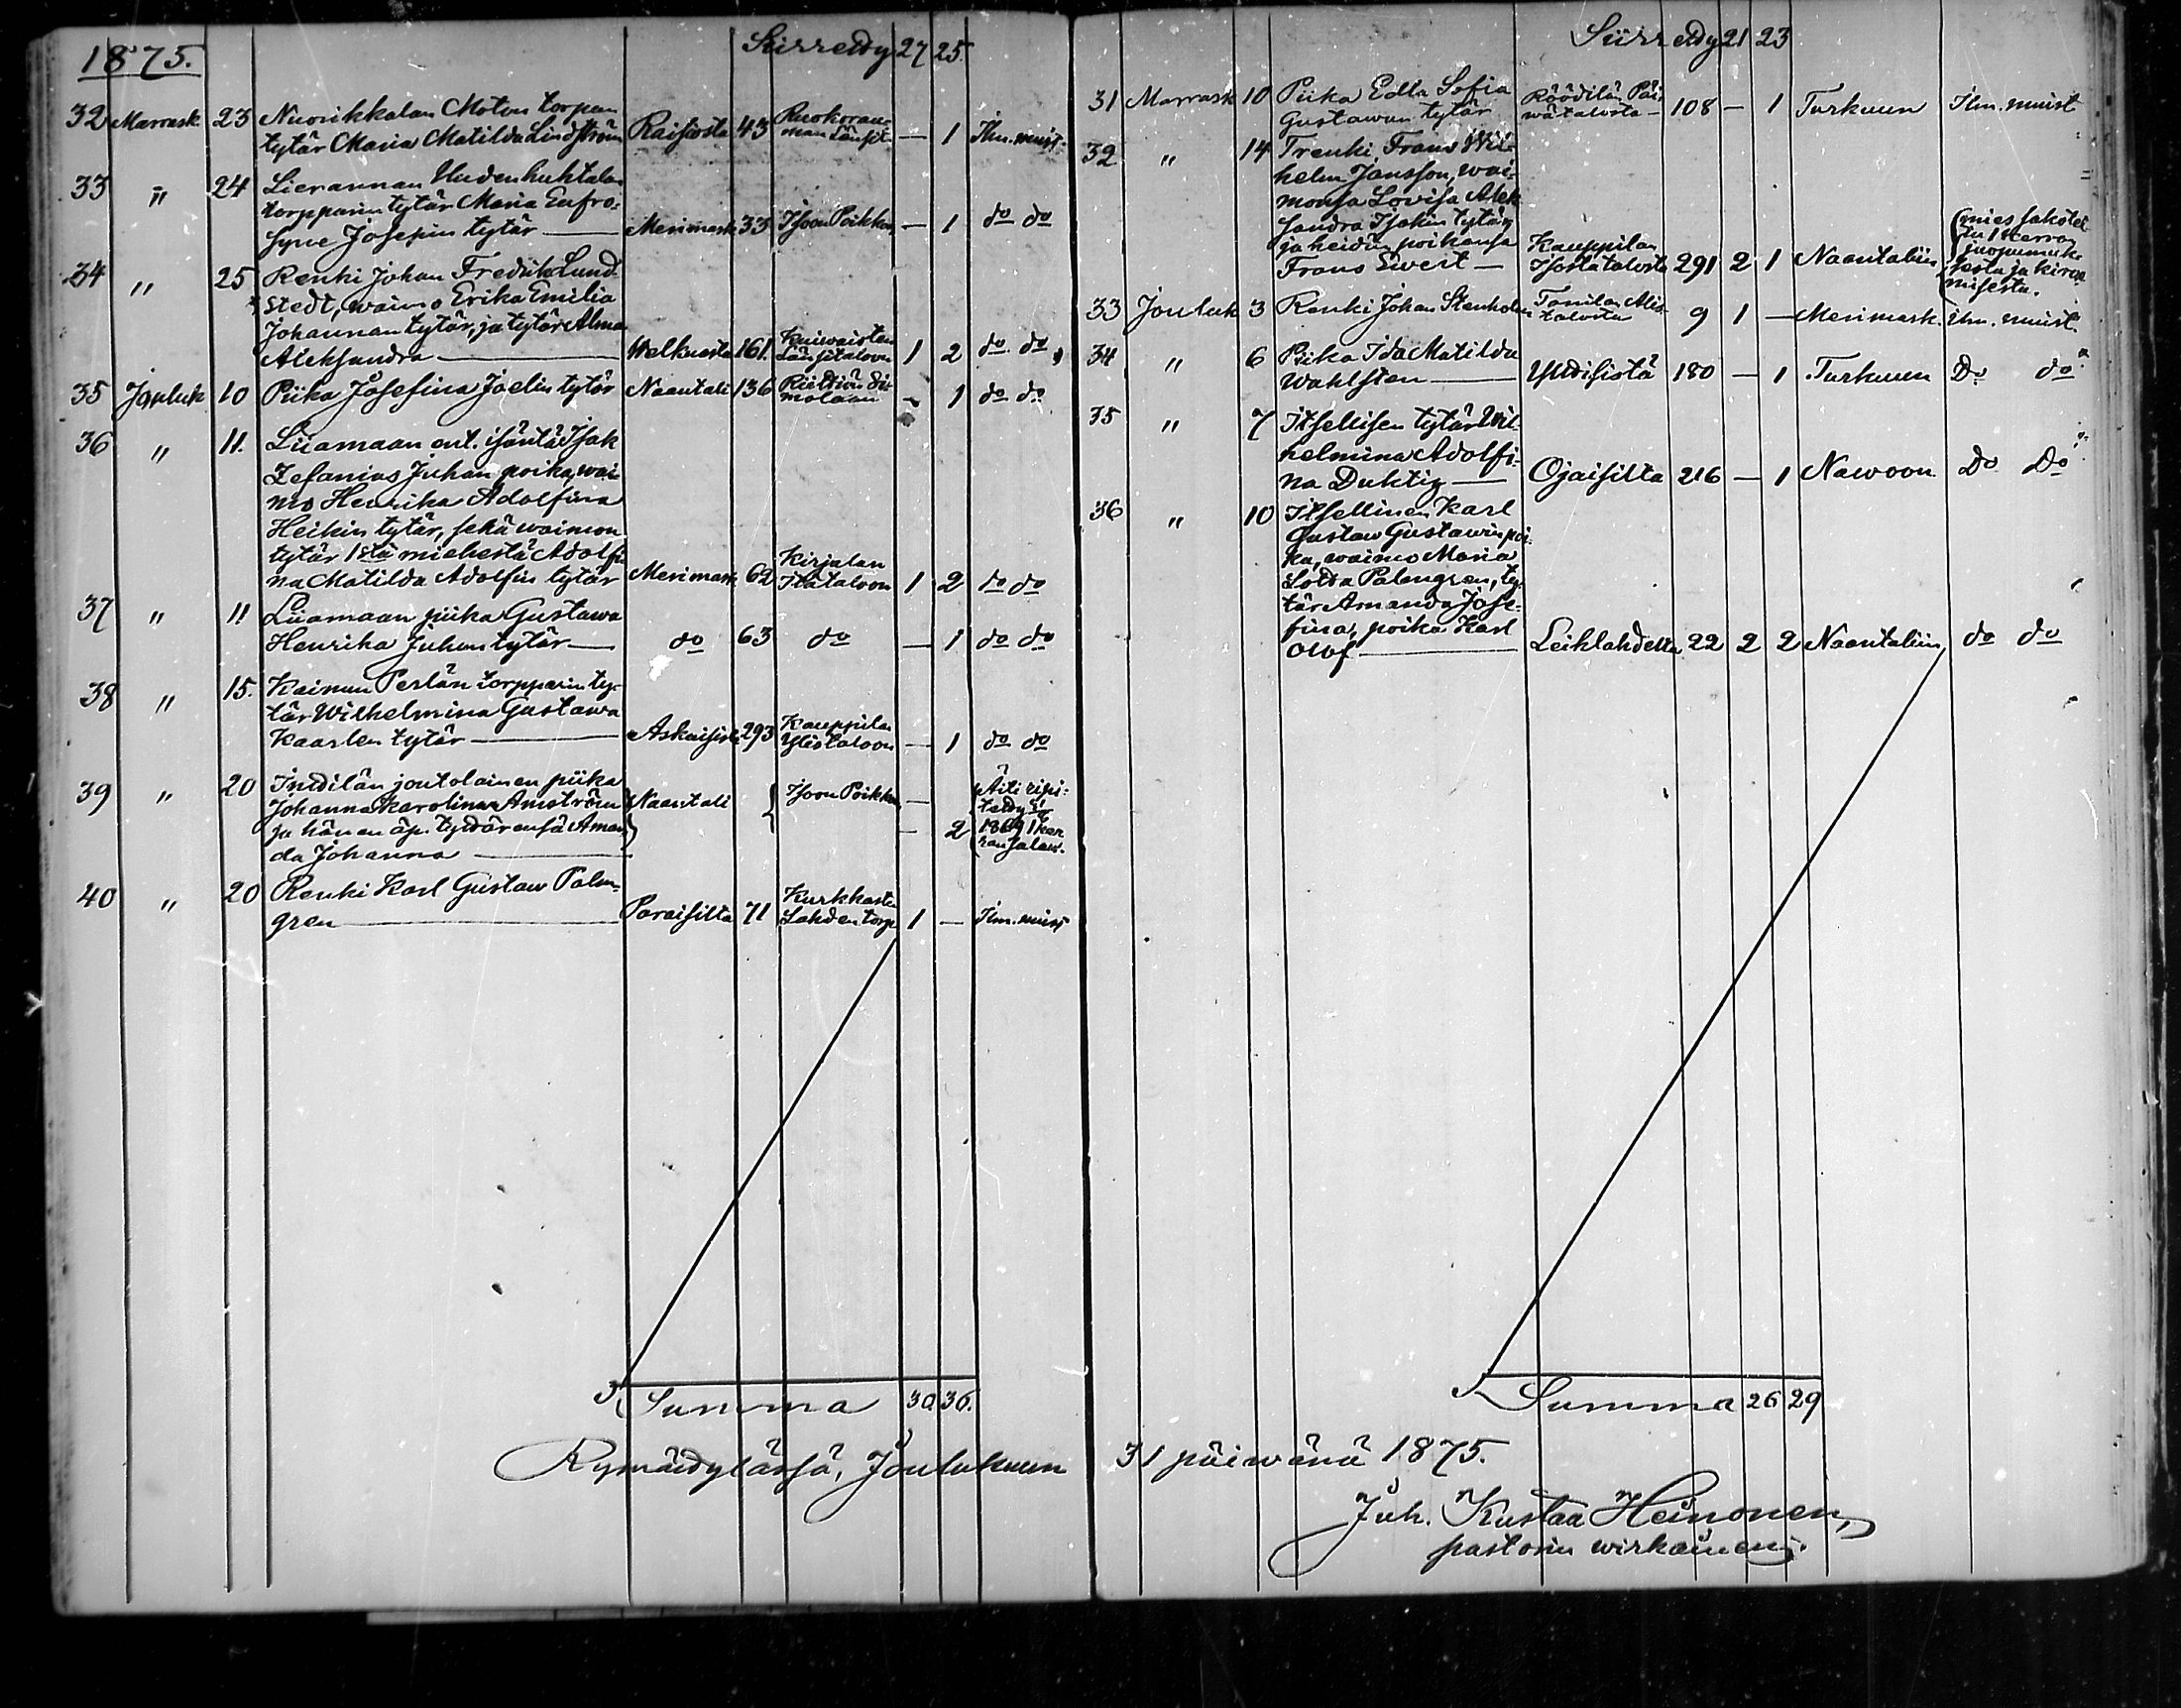 1875. Siirretty 27 25.
32 Marrask. 23 Nuorikkalan Moton torpan
tytär Maria Matilda Lindström Raisiosta 43 Ruokorau-
man Länsit. — 1 Ilm. muist.
33 " 24 Lierannan Uudenhuhtalan
torpparin tytär Maria Eufro-
syne Josepin tytär — Merimask. 33 Isoon Poikkon — 1 do do
34 " 25 Renki Johan Fredrik Lund-
stedt, waimo Erika Emilia
Johannan tytär, ja tytär Alma
Aleksandra — Welkuasta 161. Kuiwaisten
Länsitaloon 1 2 do do
35 Jouluk. 10 Piika Josefina Joelin tytär Naantali 136 - 1 do do
36 " 11. Liiamaan ent. isäntä Isak
Zefanias Juhan poika, wai-
mo Henrika Adolfina
Heikin tytär, sekä waimon
tytär 1stä miehestä Adolfi-
na Matilda Adolfin tytär Merimask. 62 Kirjalan
Itätaloon 1 2 do do
37 " 11 Liiamaan piika Gustawa
Henrika Juhan tytär — do 63 do — 1 do do
38 " 15. Kainun Perlän torpparin ty-
tär Wilhelmina Gustawa
Kaarlen tytär — Askaisista 293 Kauppilan
Ylistaloon — 1 do do
39 " 20 Inidilän joutolainen piika
Johanna Karolina Amström
ja hänen äp. tytärensä Aman-
da Johanna — Naantali Isoon Poikkon — — 2 Äiti ripi-
tetty
1869 1 ker
ran salaw.
40 " 20 Renki Karl Gustaw Palm-
gren — Paraisilta 71 Kurkkasten
Lahden torp. 1 — Ilm. muist
Summa 30 36.
Rymättylässä, Joulukuun
Siirretty 21 23
31 Marrask. 10 Piika Edla Sofia
Gustawan tytär Röödilän Päi-
wätalosta — 108 — 1 Turkuun Ilm. muist
32 " 14 Trenki Frans Wil-
helm Jansson, wai-
monsa Lovisa Alek-
sandra Isakin tytär,
ja heidän poikansa
Frans Siwert — Kauppilan
Isostatalosta 291 2 1 Naantaliin mies sakotet-
tu 1 kerran
juopumuk-
sesta ja kiroa-
misesta.
33 Jouluk. 3 Renki Johan Stenholm Tanilan Alis-
talosta 9 1 — Merimask. Ilm. muist.
34 " 6 Piika Ida Matilda
Wahlsten — Ylidisistä 180 — 1 Turkuun Do do
35 " 7 Itsellisen tytär Wil-
helmina Adolfi-
na Duktig — Ojaisilta 216 — 1 Nawoon Do Do
36 " 10 Itsellinen Karl
Gustaw Gustawin poi-
ka, waimo Maria
Lovisa Palmgren, ty-
tär Amanda Jose-
fina, poika Karl
Olof — Leiklahdelta 22 2 2 Naantaliin do do
Summa 26 29
31 päiwänä 1875.
Juh. Kustaa Heinonen,
pastorin wirkainen.